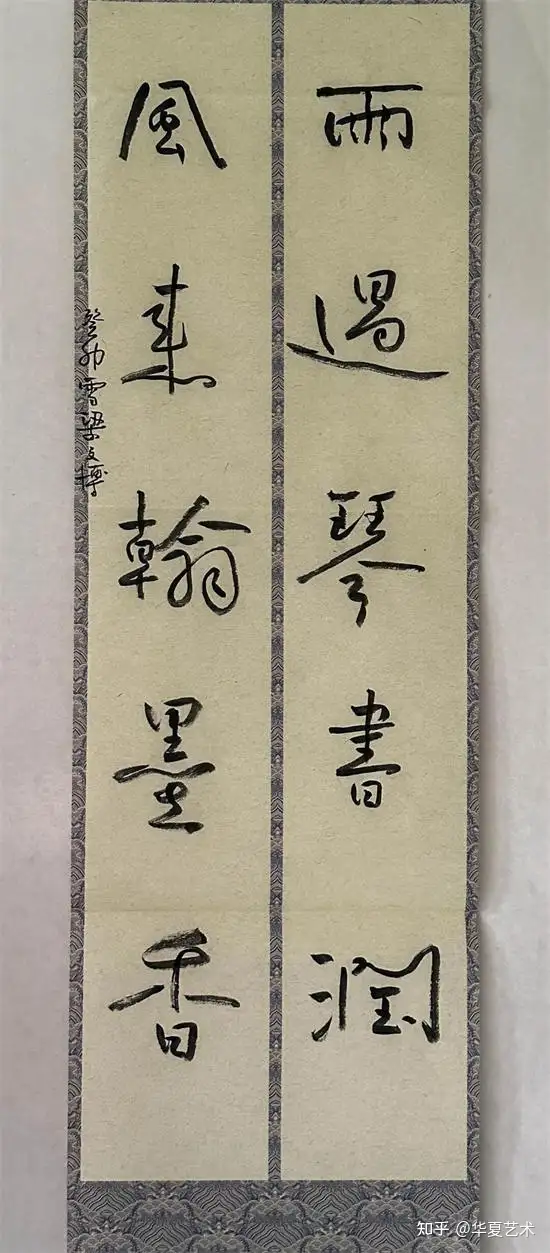 雨過琴書潤
風來翰墨香
癸卯雪梁文博
知乎 @华夏艺术